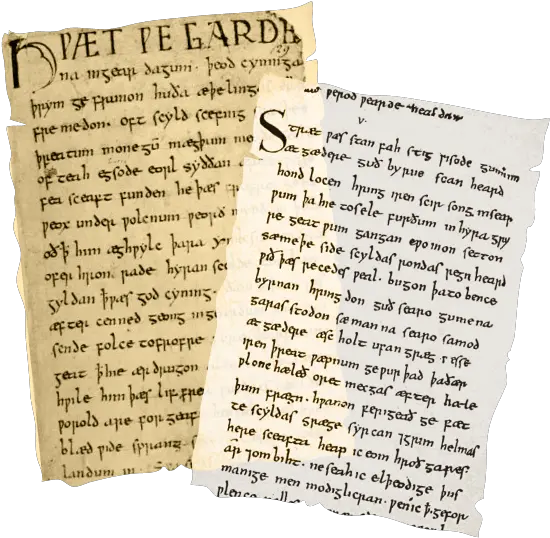 HǷÆT ǷE GARDE
na ingear dagum. þeod cyninga
þrym ge frunon huða æþeling
fre medon. oft scyld scefing
þreatum monegū mægþum
of teah egsode eorl syððan
fea sceaft funden he þæs
ƿeox under ƿolcnum ƿeorð
oð þ him æghƿylc þara
ofer hron rade hyran
gyldan þæs god cyning.
æfter cenned geong in
sende folce tofrofre
geat þ hie ær drugon
hƿile him þæs lif frea
ƿorold are for geaf.
blæd ƿide sprang.
landum in.
ƿerod ƿearde
v.
Stræt ƿæs stan fah stig ƿisode gumum
æt gædere guð byrne scan heard
hond locen hring iren scir song insear
ƿum þa hie tosele furðum in hyra gry
re geat ƿum gangan cƿomon setton
sæmeþe side scyldas rondas regn heard
ƿið þæs recedes ƿeal. bugon þa to bence
byrnan hring don guð searo gumena
garas stodon sæ man na searo samod
æt gædere æsc holt ufan græg
iren þreat ƿæpnum ge ƿur þad þa ðær
ƿlonc hæleð oret mecgas æfter hæle
þum frægn. hƿanon ferigeað ge fæt
te scyldas græge syrcan 7grim helmas
here sceafta heap ic eom hroð gares
ar 7om biht. ne seah ic elþeodige þus
manige men modiglicran. ƿenic þ. gefor
ƿlenco